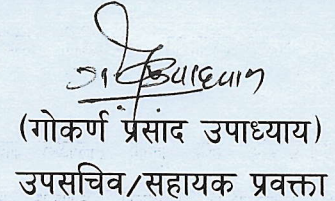 (गोकर्ण प्रसाद उपाध्याय)
उपसचिव/सहायक प्रवक्ता